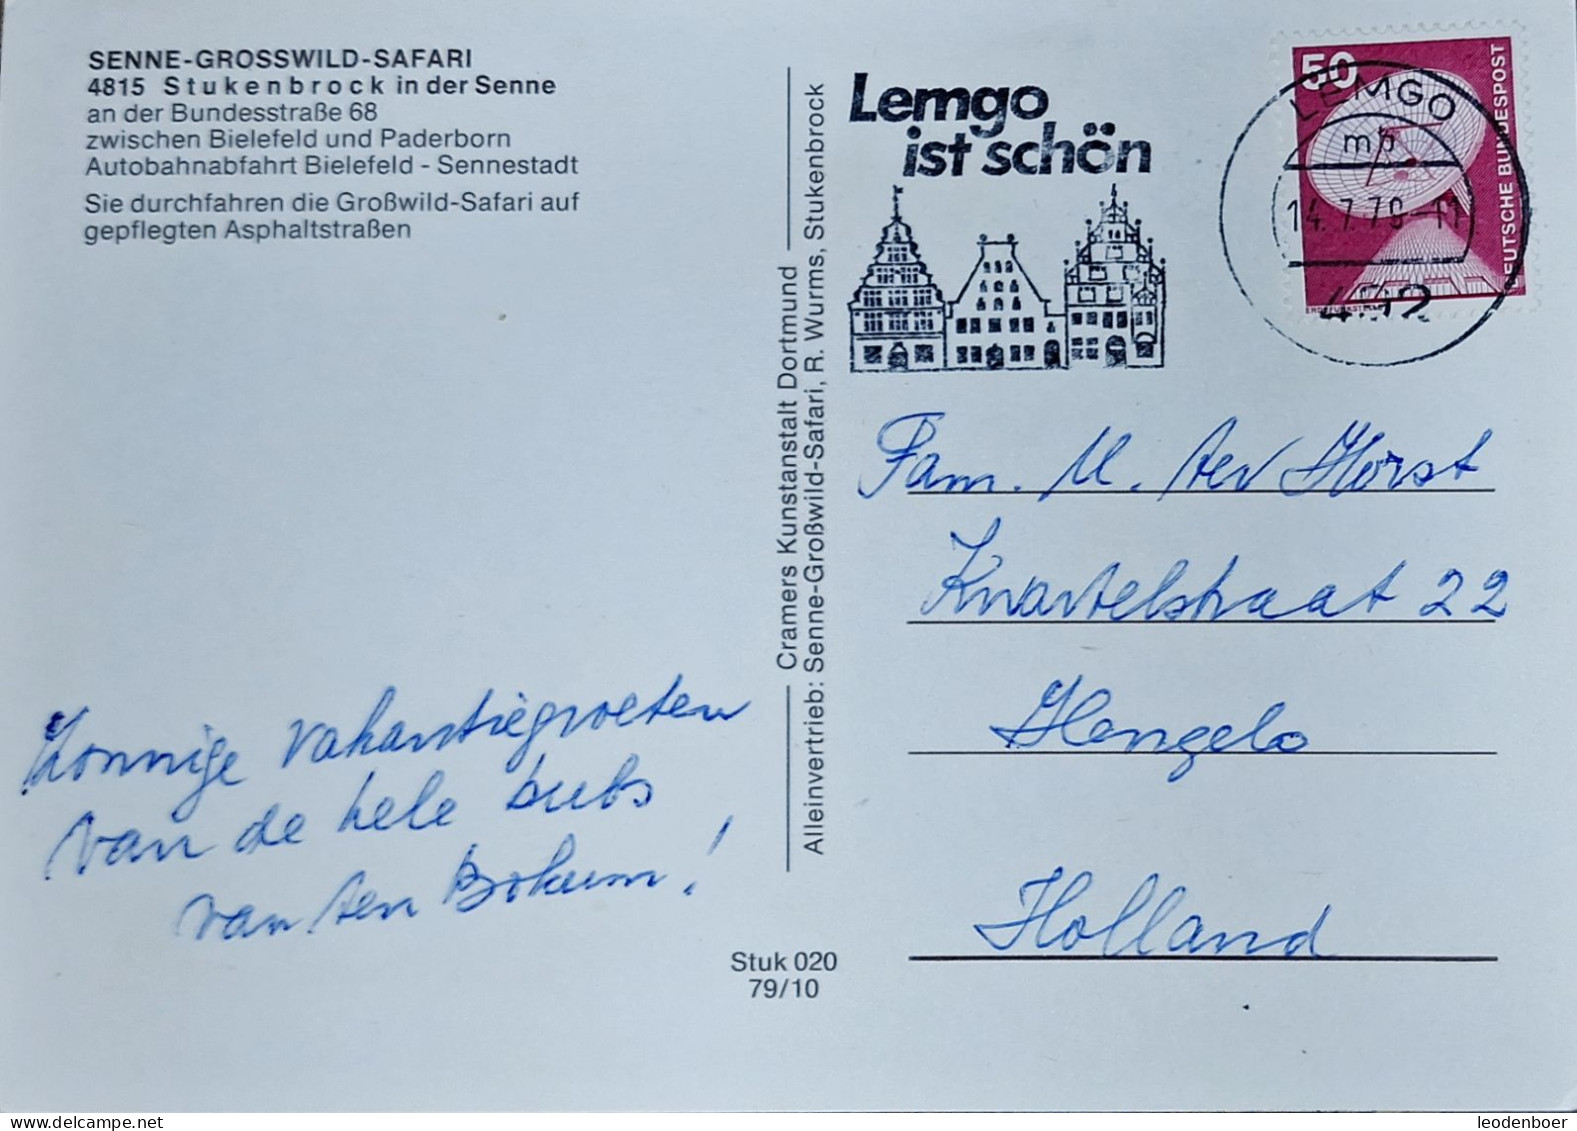 SENNE-GROSSWILD-SAFARI
4815 Stukenbrock in der Senne
an der Bundesstraße 68
zwischen Bielefeld und Paderborn
Autobahnabfahrt Bielefeld - Sennestadt
Sie durchfahren die Großwild-Safari auf
gepflegten Asphaltstraßen
Zonnige vakantiegroeten
van de hele bubs
van ten Bokum!
Cramers Kunstanstalt Dortmund
Alleinvertrieb: Senne-Großwild-Safari, R. Wurms, Stukenbrock
Stuk 020
79/10
Lemgo
ist schön
50
DEUTSCHE BUNDESPOST
ERDEFUNKSTELLE
LEMGO
14.7.79-11
492
Fam. M. ter Horst
Knartelstraat 22
Hengelo
Holland
leodenboer